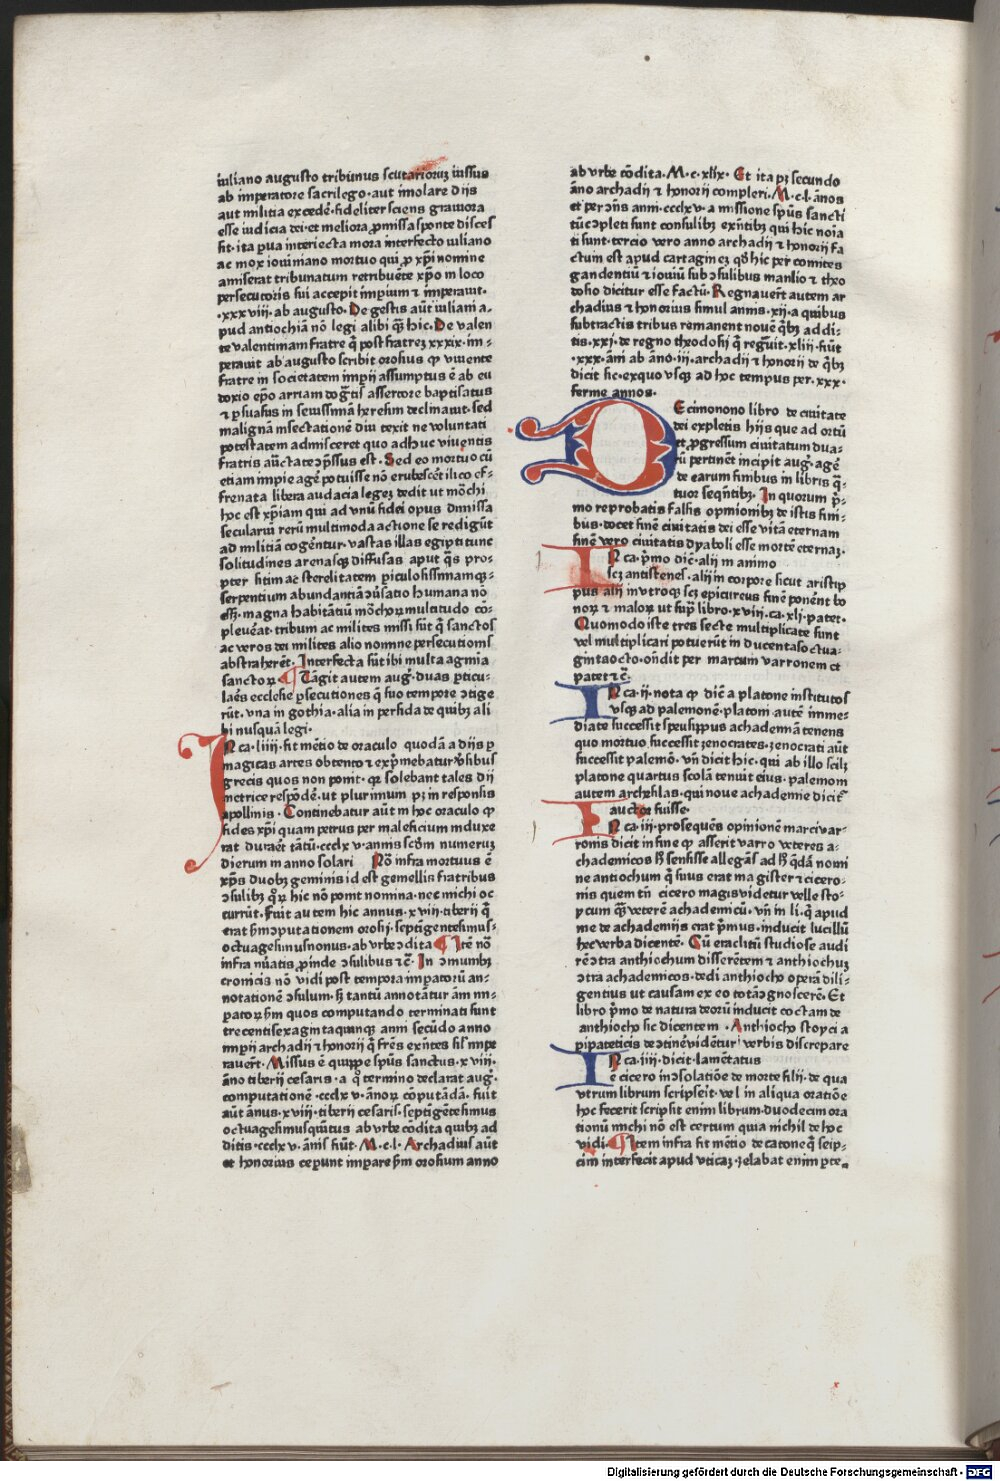 iuliano augusto tribunus scutarioruʒ iussus
ab imperatore sacrilego·aut imolare dijs
aut militia excedē·fideliter sciens grauiora
esse iudicia dei·et meliora ꝓmissa sponte disces
sit·ita ꝑua interiecta mora interfecto iuliano
ac mox iouiniano mortuo qui ꝓ xp̄i nomine
amiserat tribunatum retribuēte xp̄o in loco
persecutoris sui accepit impium ⁊ imperauit·
·xxxviii·ab augusto·De gestis aūt iuliani a⸗
pud antiochiā nō legi alibi q̄ꝫ hic·De valen
te valentiniani fratre q̄ post fratreʒ xxxix·im⸗
perauit ab augusto scribit orosius ꝙ viuente
fratre in societatem imꝑij assumptus ē ab eu
doxio ep̄o arriani dog̅tis assertore baptisatus
⁊ ꝑsuasus in seuissimā heresim declinauit·sed
malignā insectationē diu texit ne voluntati
potestatem admisceret quo adhuc viuentis
fratris aūctate ↄp̄ssus est·Sed eo mortuo cū
etiam impie agē potuisse nō erubescēt ilico ef⸗
frenata libera audacia legeʒ dedit ut mōchi
hoc est xp̄iam qui ad vnū fidei opus dimissa
seculariū rerū multimoda actione se redigūt
ad militiā cogēntur·vastas illas egipti tunc
solitudines arenasqꝫ diffusas aput q̄s pro⸗
pter sitim ac sterelitatem ꝑiculosissimamqꝫ⸗
serpentium abundantiā ↄūsatio humana nō
eēꝫ·magna habitātiū mōchoꝝ multitudo cō⸗
pleuēat·tribuni ac milites missi sūt q̄ sanctos
ac veros dei milites alio nomine persecutionis
abstraherēt·Interfecta sūt ibi multa agmia
sanctoꝝ ¶ Tāgit autem aug̅·duas ꝑticu⸗
laēs ecclesie ꝑsecutiones q̄ suo tempore ↄtige
rūt·vna in gothia·alia in perfida de quibꝫ ali
bi nusquā legi·
IN ca·liiii·fit mētio de oraculo quodā a dijs ꝑ
magicas artes obtento ⁊ exp̄mebatur v̄sibus
grecis quos non ponit·qꝛ solebant tales dij
metrice respōdē·ut plurimum pꝫ in responsis
apollinis·Continebatur aūt in hoc oraculo ꝙ
fides xp̄i quam petrus per maleficium induxe
rat duraēt tātū·ccclxv·annis scd̄m numeruʒ
dierum in anno solari Nō infra mortuus ē
xp̄us duobꝫ geminis id est gemellis fratribus
ↄsulibꝫ q̄ꝝ hic nō ponit nomina·nec michi oc
currūt·Fuit autem hic annus·xviii·tiberij q̄
erat s̄m ↄputationem orosij·septigentesimus⸗
octuagesimusnonus·ab vrbe ↄdita ¶ Itē nō
infra nūiatis ꝓinde ↄsulibus ⁊c̄·In ↄmunibꝫ
cronicis nō vidi post tempora imꝑatorū an⸗
notationē ↄsulum·ꝫ tantū annotātur āni im⸗
ꝑatoꝝ s̄m quos computando terminati sunt
trecentisexagintaquinqꝫ anni secūdo anno
imꝑij archadij ⁊ honorij q̄ frēs exn̄tes sil̄ impe
rauēt·Missus ē quippe spūs sanctus·xviii·
āno tiberij cesaris·a q̊ termino declarat aug̅·
computationē·ccclxv·ānoꝝ cōputādā·fuit
aūt ānus·xviii·tiberij cesaris·septigētesimus
octuagesimusquītus ab vrbe cōdita quibꝫ ad
ditis·ccclxv·ānis fiūt·M·c·l·Archadius aūt
et honorius ceperunt imꝑare s̄m orosium anno
ab vrbe cōdita·M·c·xlix·Et ita pꝫ secundo
āno archadij ⁊ honorij compleri·M·c·l·ānos
et per ↄn̄s anni·ccclxv·a missione spūs sancti
tūc ↄpleti sunt consulibꝫ exn̄tibꝫ qui hic noīa
ti sunt·tercio vero anno archadij ⁊ honorij fa
ctum est apud cartagineʒ qd̄ hic per comites
gandentiū ⁊ iouiū sub ↄsulibus manlio ⁊ theo
dosio dicitur esse factū·Regnauēt autem ar
chadius ⁊ honorius simul annis·xij·a quibus
subtractis tribus remanent nouē q̄bꝫ addi⸗
tis·xxj·de regno theodosij q̄ reg̅uit·xliij·fiūt
·xxx·āni ab āno·iij·archadij ⁊ honorij de q̄bꝫ
dicit sic·exquo vsqꝫ ad hoc tempus per·xxx·
ferme annos·
DEcimonono libro de ciuitate
dei expletis hijs que ad ortū
et ꝓgressum ciuitatum dua⸗
rū pertinēt incipit aug̅·agē
de earum finibus in libris q̄⸗
tuor seqn̄tibꝫ·In quorum p̄⸗
mo reprobatis falsis opinionibꝫ de istis fini⸗
bus·docet finē ciuitatis dei esse vitā eternam
finē vero ciuitatis dyaboli esse mortē eternaʒ·
IN ca·p̄mo dic̄·alij in animo
scꝫ antistenes·alij in corpore sicut aristip
pus alij in vtroqꝫ scꝫ epicureus finē ponēnt bo
noꝝ ⁊ maloꝝ ut sup̄ libro·xviii·ca·xlj·patet·
Quomodo iste tres secte multiplicate sunt
vel multiplicari potuerūt in ducentasoctua⸗
gintaocto·on̄dit per marcum varronem et
patet ⁊c̄·
IN ca·ij·nota ꝙ dic̄ a platone institutos
vsqꝫ ad palemonē·platoni autē imme⸗
diate successit speusippus achademiā tenens
quo mortuo successit zenocrates·zenocrati aūt
successit palemō·vn̄ dicit hic·qui ab illo scilꝫ
platone quartus scolā tenuit eius·palemoni
autem archesilas·qui noue achademie dicit̄
auctor fuisse·
IN ca·iij·prosequēs opinionē marci var⸗
ronis dicit in fine ꝙ asserit varro veteres a⸗
chademicos h̄ sensisse allegās ad h̄ q̄dā nomi
ne antiochum q̄ suus erat magister ⁊ cicero⸗
nis quem tn̄ cicero magis videtur velle sto⸗
ycum q̄ꝫ veterē achademicū·vn̄ in li·q̄ apud
me de achademijs erat p̄mus·inducit lucillū
hec verba dicentē·Cū eraclitū studiose audi
rē ↄtra anthiochum disserētem ⁊ anthiochuʒ
ↄtra achademicos·dedi anthiocho operā dili⸗
gentius ut causam ex eo totā ↄgnoscerē·Et
libro p̄mo de natura deorū inducit coctam de
anthiocho sic dicentem·Anthiocho stoyci a
pipateticis de ↄtinē videntur verbis discrepare
IN ca·iiij·dicit·lamētatus
ē cicero in ↄsolatiōe de morte filij·de qua
vtrum librum scripserit·vel in aliqua oratiōe
hoc fecerit scripsit enim librum·duodecim ora
tionū michi nō est certum quia nichil de hoc
vidi·¶ Item infra fit mētio de catone q̄ seip⸗
sim interfecit apud vticaʒ·zelabat enim ꝑte⸗
Digitalisierung gefördert durch die Deutsche Forschungsgemeinschaft - DFG